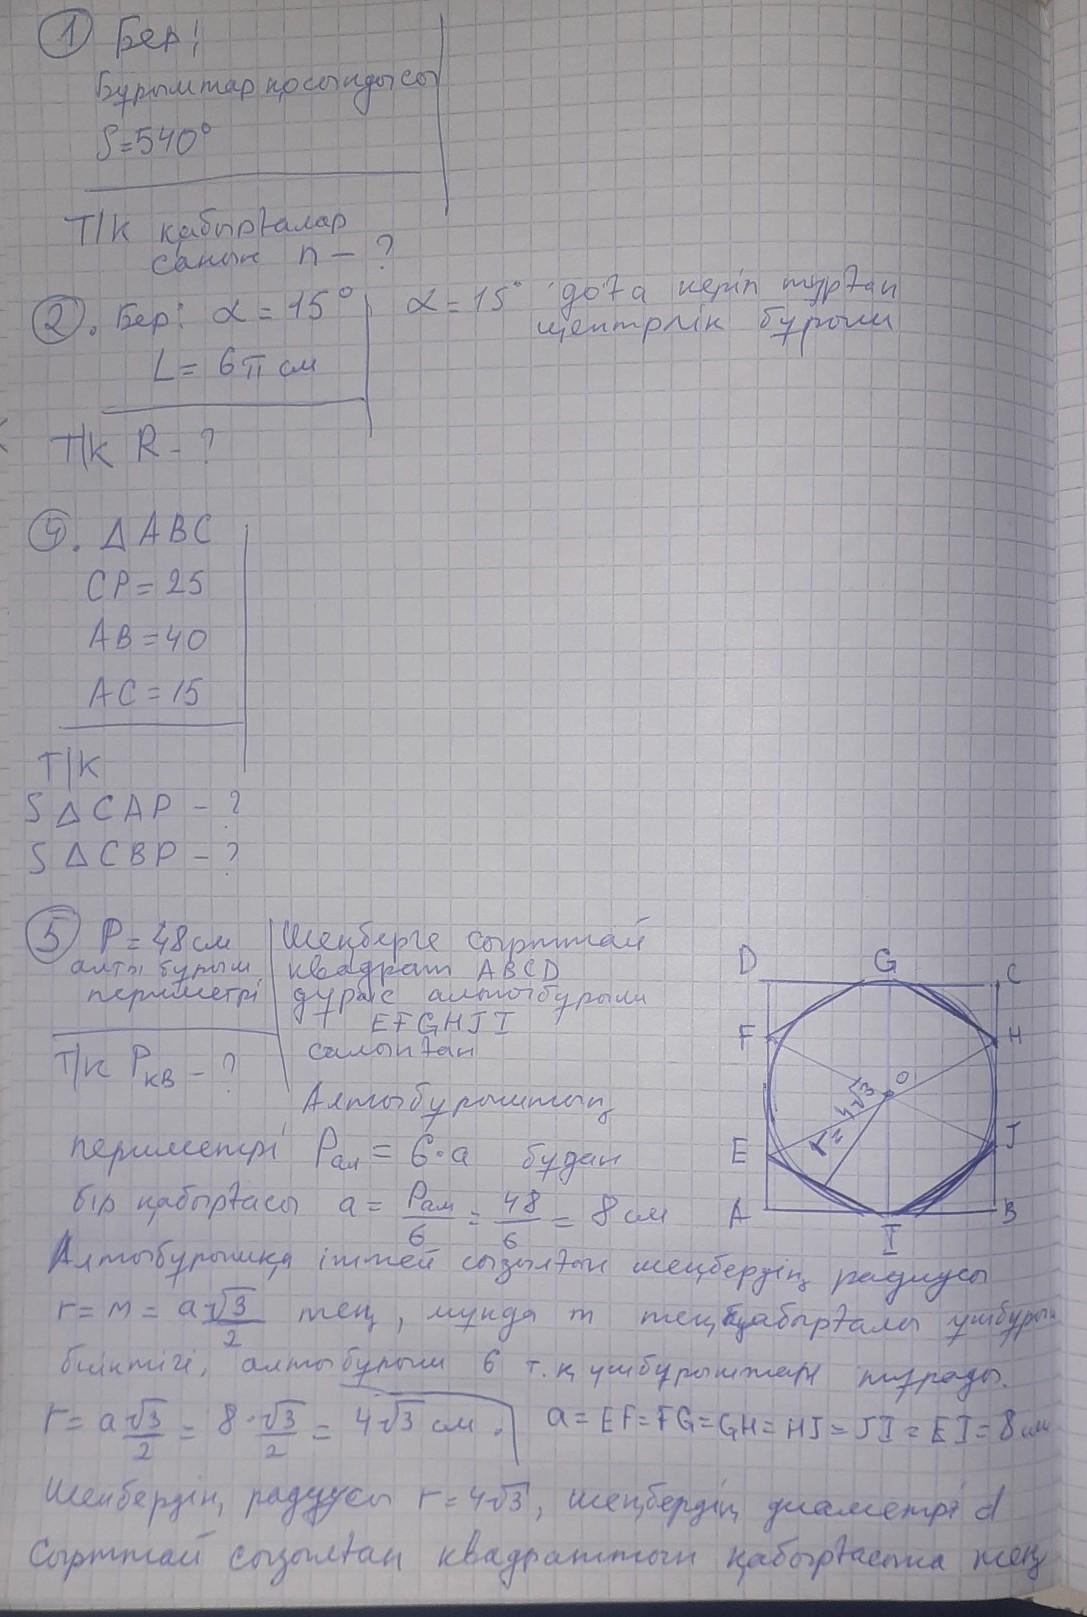 ① Бер:
Бұрыштар қосындысы
S=540°
Т/К қабырғалар
санын n - ?
②. Бер: α = 15° α = 15° доға керіп тұрған
L = 6π см центрлік бұрыш
Т/К R - ?
④. △ABC
CP = 25
AB = 40
AC = 15
Т/К
S△CAP - ?
S△CBP - ?
⑤ P = 48 см Шеңберге сырттай
алты бұрыш квадрат ABCD
периметрі дұрыс алтыбұрыш
EFGHJI
Т/К Pкв - ? салынған
Алтыбұрыштың
D G C
F H
O
r = 4√3
E J
A I B
периметрі Pал = 6·a бұдан
бір қабырғасы a = Pал/6 = 48/6 = 8 см
Алтыбұрышқа іштей сызылған шеңбердің радиусы
r = m = a√3/2 тең, мұнда m теңқабырғалы үшбұрыш
биіктігі, алтыбұрыш 6 т.қ үшбұрыштан тұрады.
r = a√3/2 = 8·√3/2 = 4√3 см. a = EF = FG = GH = HJ = JI = EI = 8 см
Шеңбердің радиусы r = 4√3, шеңбердің диаметрі d
Сырттай сызылған квадраттың қабырғасына тең